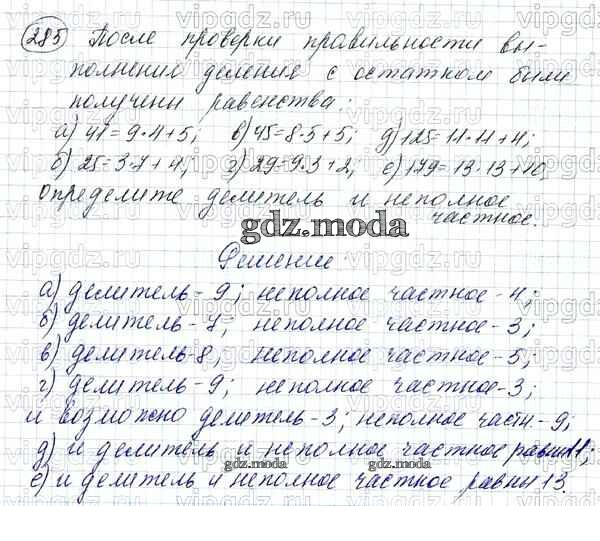 285) После проверки правильности вы-
полнению деления с остатком были
получены равенства:
а) 41=9·4+5; в) 45=8·5+5; д) 125=11·11+4;
б) 25=3·7+4; г) 29=9·3+2; е) 179=13·13+10
Определите делитель и неполное
частное.
gdz.moda
Решение
а) делитель-9; неполное частное-4;
б) делитель-7; неполное частное-3;
в) делитель-8; неполное частное-5;
г) делитель-9; неполное частное-3;
и возможно делитель-3; неполное частн.-9;
д) и делитель и неполное частное равны 11;
gdz.moda gdz.moda
е) и делитель и неполное частное равны 13.